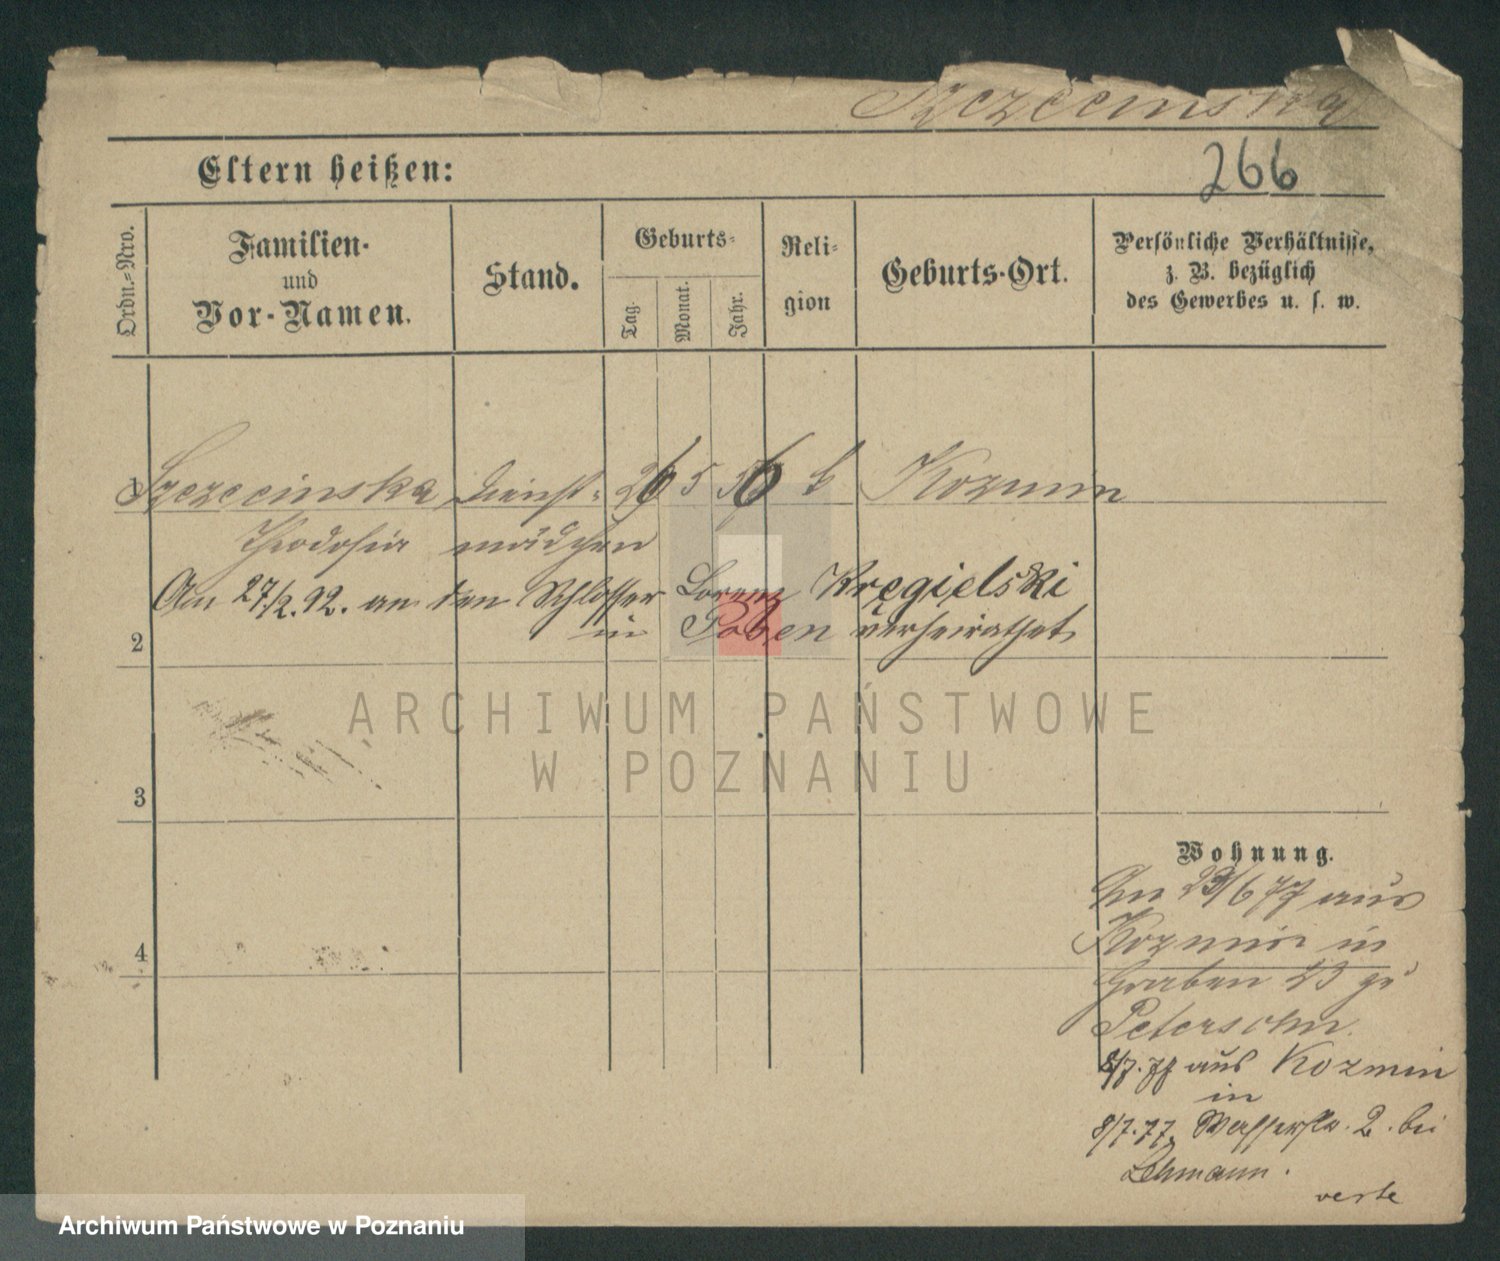 Szczecinska
266
Eltern heißen:
Ordn.-Nro.
Familien-
und
Vor-Namen.
Stand.
Geburts-
Tag.
Monat.
Jahr.
Reli-
gion
Geburts-Ort.
Persönliche Verhältnisse,
z. B. bezüglich
des Gewerbes u. s. w.
1 Szczecinska Dienst- 26 5 56 k Kozmin
Theodosia mädchen
Am 27/2. 92. an den Schlosser Lorenz Kręgielski
2 in Posen verheirathet
3
ARCHIWUM PAŃSTWOWE
W POZNANIU
Wohnung.
4
Am 23/6 77 aus
Kozmin in
Graben 23 zu
Petersohn.
8/7. 77 aus Kozmin
in
8/7. 77. Wasserstr. 2. bei
Lehmann.
verte
Archiwum Państwowe w Poznaniu